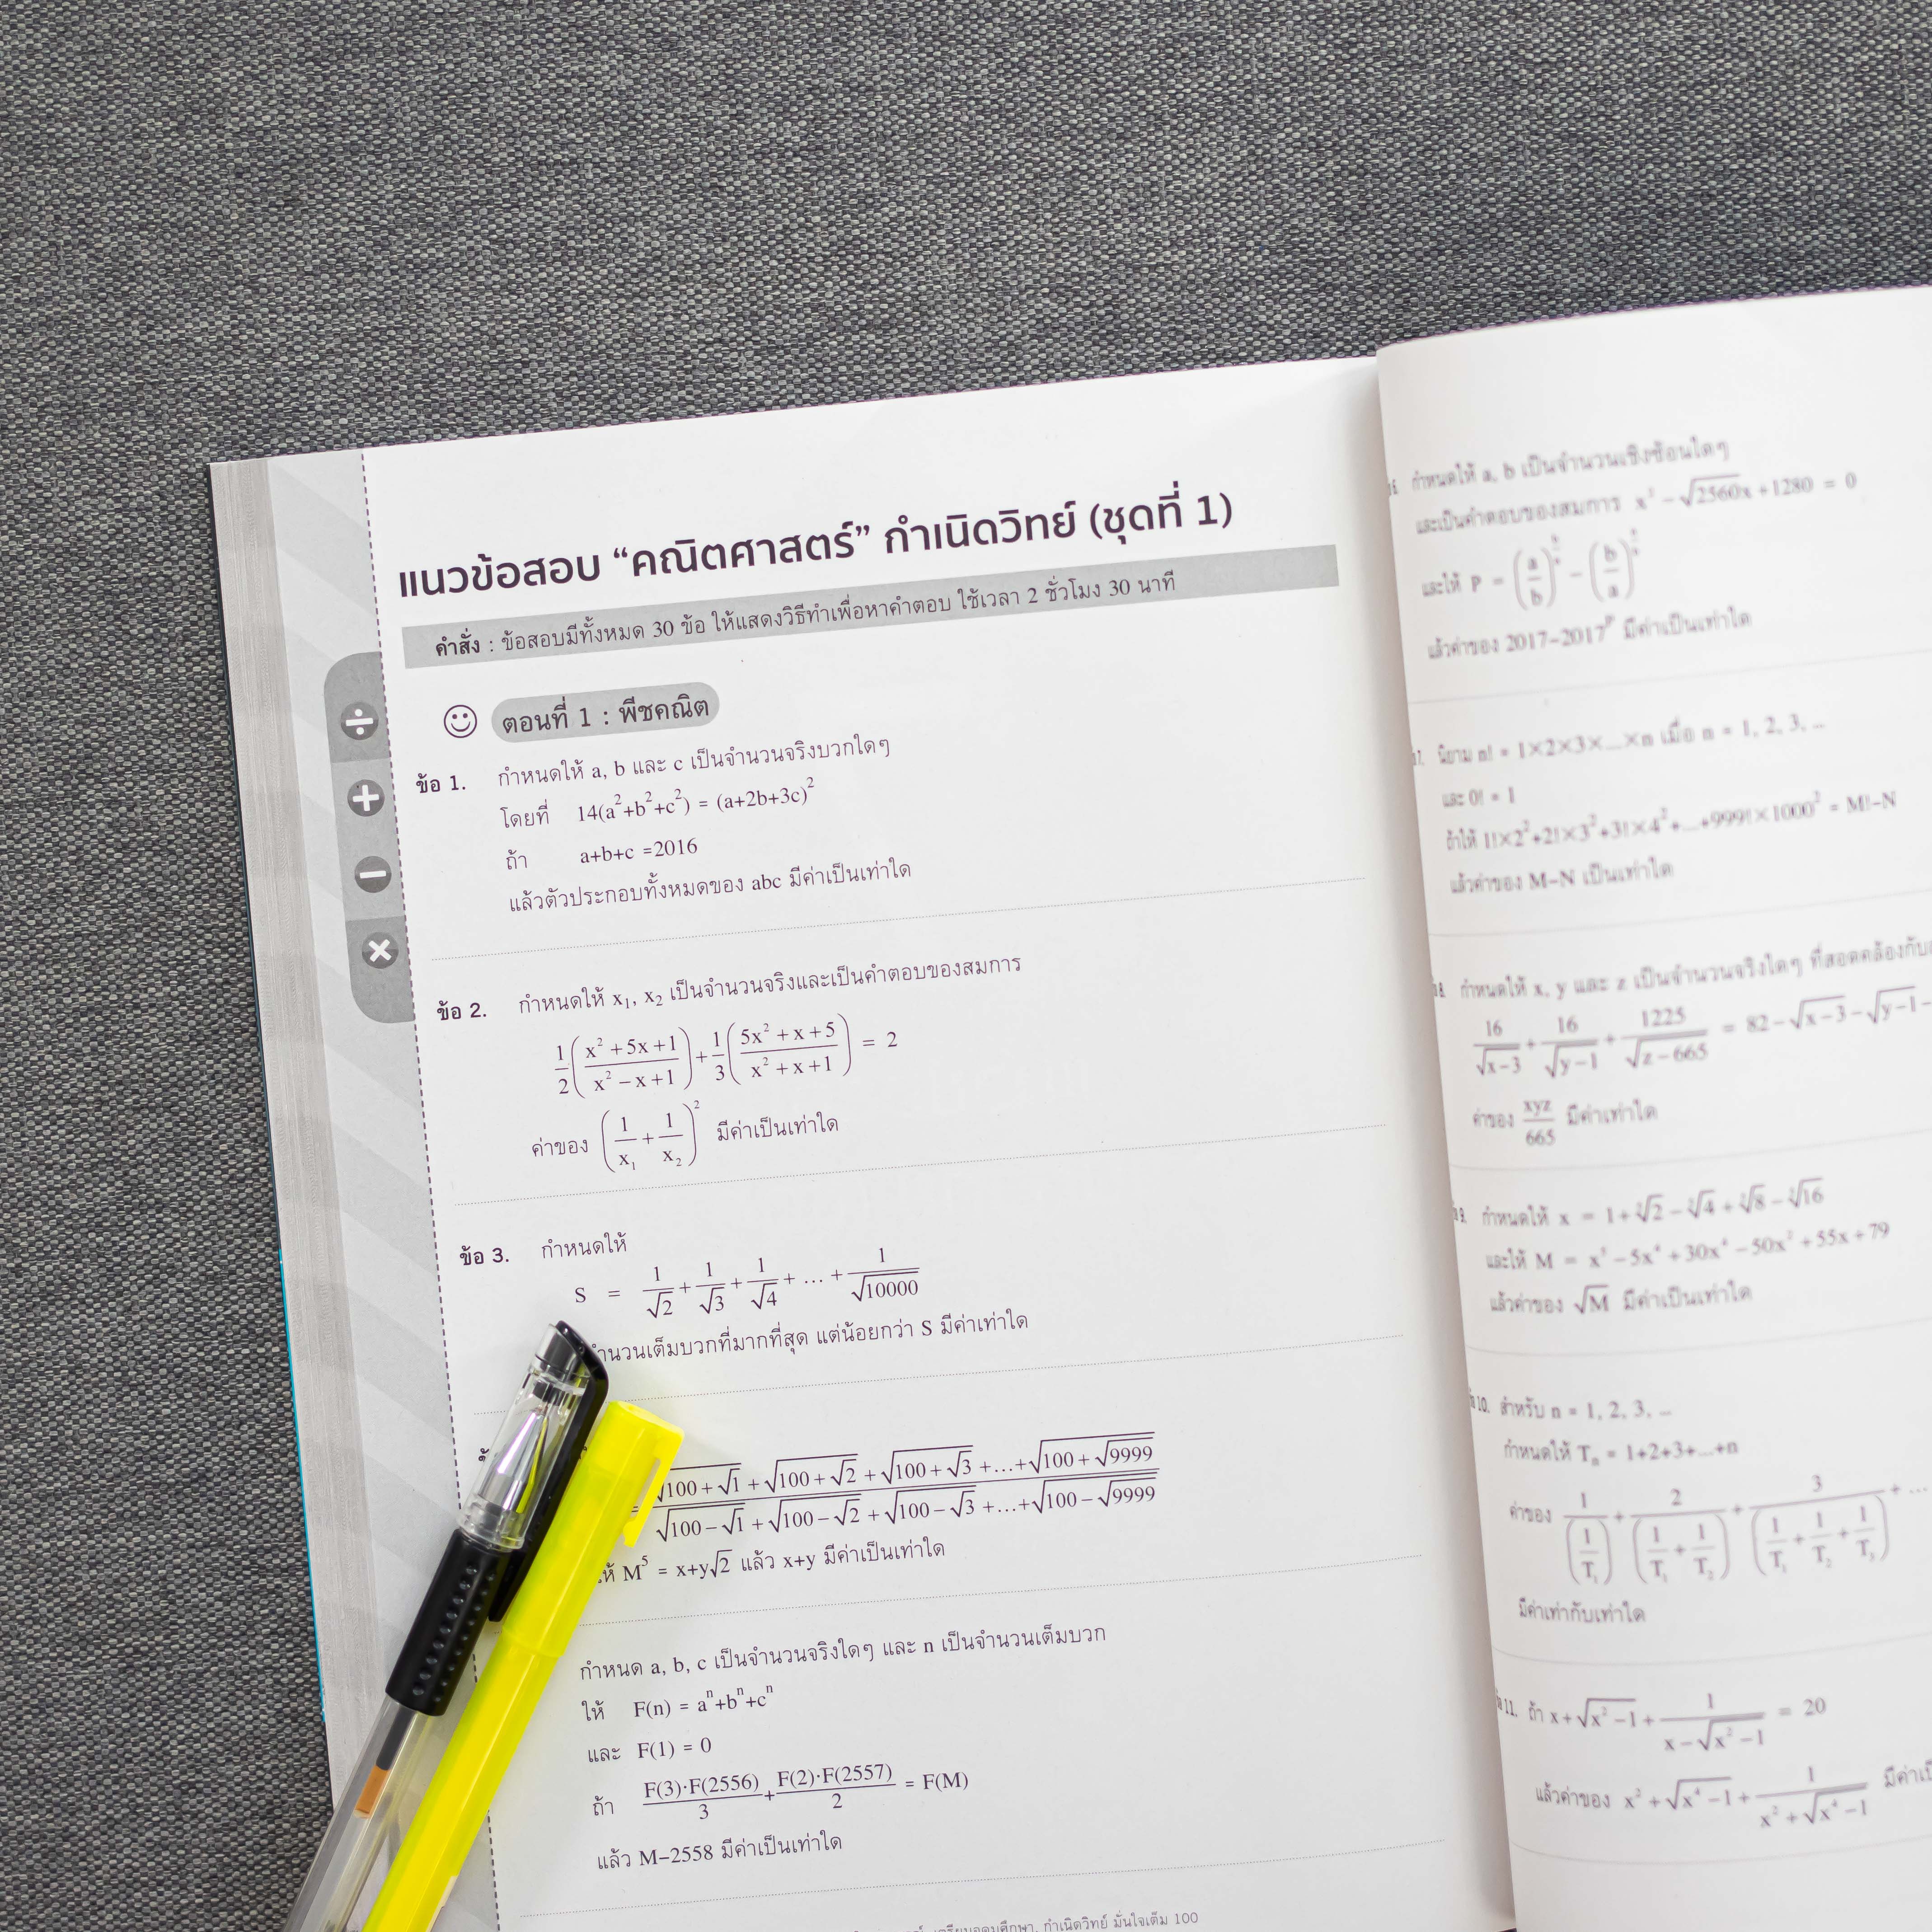 แนวข้อสอบ “คณิตศาสตร์” กำเนิดวิทย์ (ชุดที่ 1)
คำสั่ง : ข้อสอบมีทั้งหมด 30 ข้อ ให้แสดงวิธีทำเพื่อหาคำตอบ ใช้เวลา 2 ชั่วโมง 30 นาที
ตอนที่ 1 : พีชคณิต
ข้อ 1. กำหนดให้ a, b และ c เป็นจำนวนจริงบวกใดๆ
โดยที่ 14(a²+b²+c²) = (a+2b+3c)²
ถ้า a+b+c =2016
แล้วตัวประกอบทั้งหมดของ abc มีค่าเป็นเท่าใด
ข้อ 2. กำหนดให้ x₁, x₂ เป็นจำนวนจริงและเป็นคำตอบของสมการ
1/2((x²+5x+1)/(x²−x+1))+1/3((5x²+x+5)/(x²+x+1)) = 2
ค่าของ (1/x₁+1/x₂)² มีค่าเป็นเท่าใด
ข้อ 3. กำหนดให้
S = 1/√2+1/√3+1/√4+ ... +1/√10000
จำนวนเต็มบวกที่มากที่สุด แต่น้อยกว่า S มีค่าเท่าใด
= (√(100+√1)+√(100+√2)+√(100+√3)+...+√(100+√9999))/(√(100−√1)+√(100−√2)+√(100−√3)+...+√(100−√9999))
ให้ M⁵ = x+y√2 แล้ว x+y มีค่าเป็นเท่าใด
กำหนด a, b, c เป็นจำนวนจริงใดๆ และ n เป็นจำนวนเต็มบวก
ให้ F(n) = aⁿ+bⁿ+cⁿ
และ F(1) = 0
ถ้า F(3)·F(2556)/3+F(2)·F(2557)/2 = F(M)
แล้ว M−2558 มีค่าเป็นเท่าใด
เตรียมอุดมศึกษา, กำเนิดวิทย์ มั่นใจเต็ม 100
กำหนดให้ a, b เป็นจำนวนเชิงซ้อนใดๆ
และเป็นคำตอบของสมการ x² − √2560x +1280 = 0
และให้ P = (a/b) − (b/a)
แล้วค่าของ 2017−2017ᴾ มีค่าเป็นเท่าใด
นิยาม n! = 1×2×3×...×n เมื่อ n = 1, 2, 3, ...
และ 0! = 1
ถ้าให้ 1!×2²+2!×3²+3!×4²+...+999!×1000² = M!−N
แล้วค่าของ M−N เป็นเท่าใด
กำหนดให้ x, y และ z เป็นจำนวนจริงใดๆ ที่สอดคล้องกับ
16/√(x−3)+16/√(y−1)+1225/√(z−665) = 82−√(x−3)−√(y−1)−
ค่าของ xyz/665 มีค่าเท่าใด
กำหนดให้ x = 1+⁵√2−⁵√4+⁵√8−⁵√16
และให้ M = x⁵−5x⁴+30x³−50x²+55x+79
แล้วค่าของ √M มีค่าเป็นเท่าใด
10. สำหรับ n = 1, 2, 3, ...
กำหนดให้ Tₙ = 1+2+3+...+n
ค่าของ 1/(1/T₁)+2/(1/T₁+1/T₂)+3/(1/T₁+1/T₂+1/T₃)+ ...
มีค่าเท่ากับเท่าใด
11. ถ้า x+√(x²−1)+1/(x−√(x²−1)) = 20
แล้วค่าของ x²+√(x⁴−1)+1/(x²+√(x⁴−1))